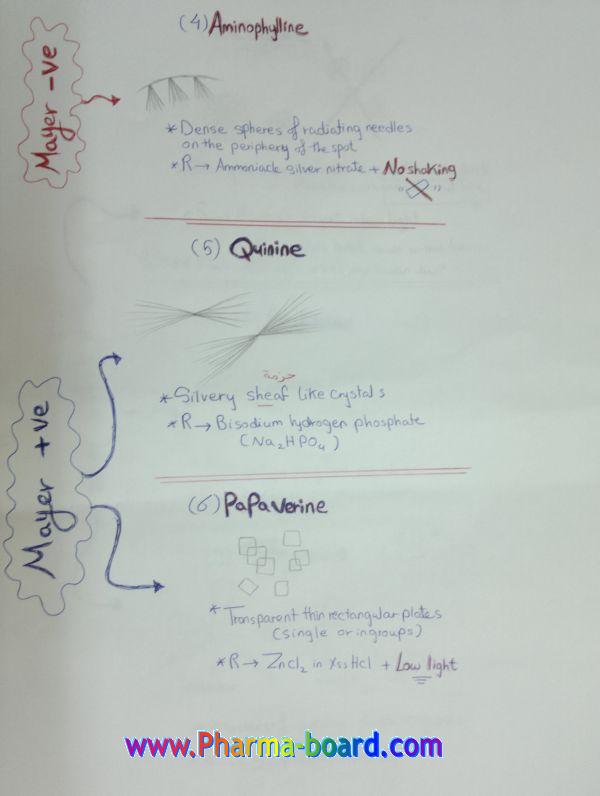 (4) Aminophylline
Mayer -ve
* Dense spheres of radiating needles
on the periphery of the spot
* R → Ammoniacle silver nitrate + No shaking
(5) Quinine
حزمة
* Silvery sheaf like crystals
* R → Bisodium hydrogen phosphate
(Na₂HPO₄)
Mayer +ve
(6) Papaverine
* Transparent thin rectangular plates
(single or ingroups)
* R → ZnCl₂ in Xss Hcl + Low light
www.Pharma-board.com